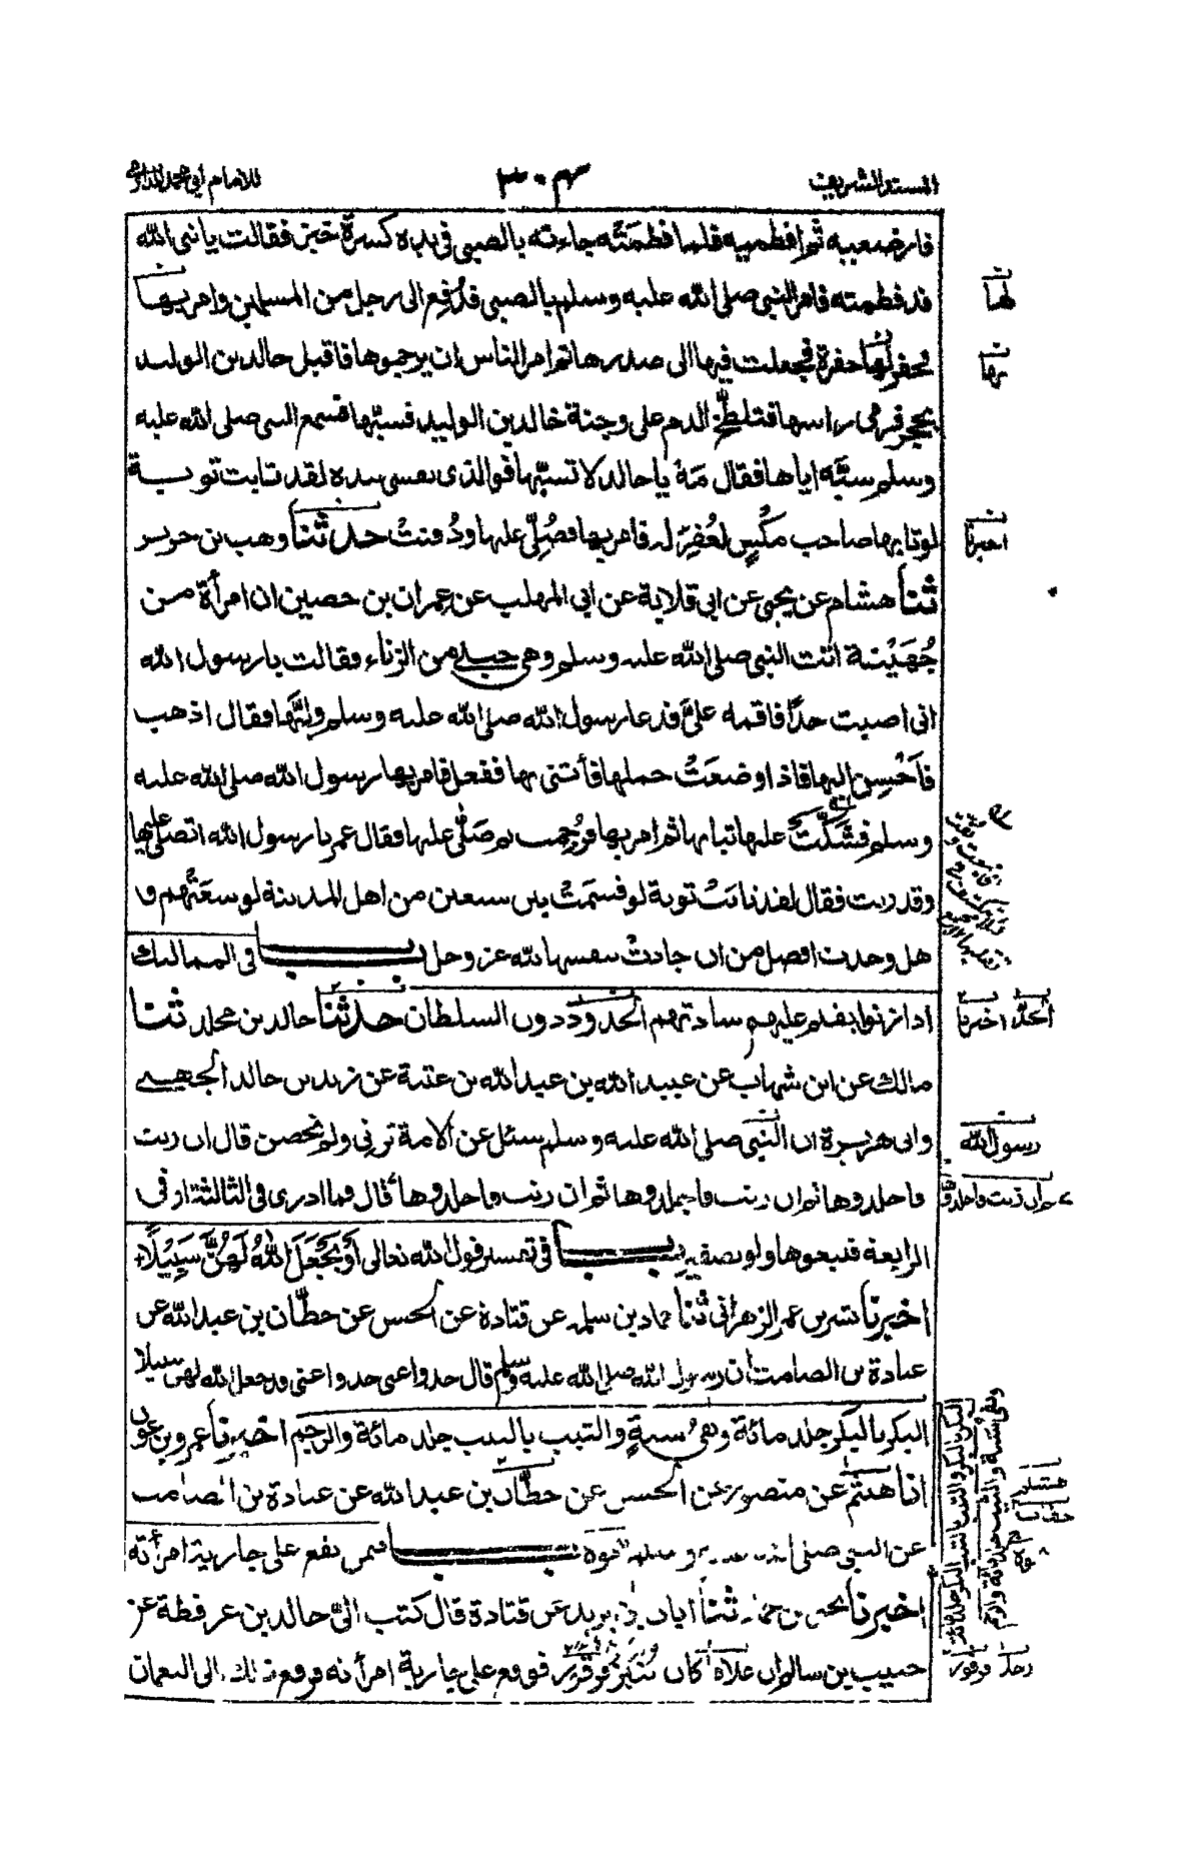 المسند الشريف
٣٠٤
للامام ابي محمد الدارمي
فارضعيه ثم افطميه فلما فطمته جاءته بالصبي في يده كسرة خبز فقالت يا نبي الله
قد فطمته فامر النبي صلى الله عليه وسلم بالصبي فدفع الى رجل من المسلمين وامر بها
فحفر لها حفرة فجعلت فيها الى صدرها ثم امر الناس ان يرجموها فاقبل خالد بن الوليد
بحجر فرمى راسها فتلطخ الدم على وجنة خالد بن الوليد فسبّها فسمع النبي صلى الله عليه
وسلم سبَّه اياها فقال مَهْ يا خالد لا تسبّها فوالذي نفسي بيده لقد تابت توبة
لو تابها صاحب مَكْسٍ لغُفِرَ له فامر بها فصُلِّي عليها ودُفنتْ حدثنا وهب بن جرير
ثنا هشام عن يحيى عن ابي قلابة عن ابي المهلب عن عمران بن حصين ان امرأة من
جُهَيْنة اتت النبي صلى الله عليه وسلم وهي حبلى من الزناء فقالت يا رسول الله
اني اصبت حدًّا فاقمه عليَّ فدعا رسول الله صلى الله عليه وسلم وليَّها فقال اذهب
فاَحْسِن اليها فاذا وضعَتْ حملها فأتني بها ففعل فامر بها رسول الله صلى الله عليه
وسلم فشكّت عليها ثيابها ثم امر بها فرُجمت ثم صَلّى عليها فقال عمر يا رسول الله اتصلي عليها
وقد زنت فقال لقد تابَتْ توبة لو قسمَتْ بين سبعين من اهل المدينة لوسعَتْهم و
هل وجدت افضل من ان جادتْ بنفسها لله عز وجل باب في المماليك
اذا زنوا يقيم عليهم سادتهم الحدود دون السلطان حدثنا خالد بن مخلد ثنا
مالك عن ابن شهاب عن عبيد الله بن عبد الله بن عتبة عن زيد بن خالد الجهني
وابي هريرة ان النبي صلى الله عليه وسلم سئل عن الامة تزني ولم تحصن قال ان زنت
فاجلدوها ثم ان زنت فاجلدوها ثم ان زنت فاجلدوها قال فما ادري في الثالثة او في
الرابعة فبيعوها ولو بضفير باب في تفسير قول الله تعالى أَوْ يَجْعَلَ اللهُ لَهُنَّ سَبِيْلًا
اخبرنا بشر بن عمر الزهراني ثنا حماد بن سلمة عن قتادة عن الحسن عن حطّان بن عبد الله عن
عبادة بن الصامت ان رسول الله صلى الله عليه وسلم قال خذوا عني خذوا عني قد جعل الله لهن سبيلا
البكر بالبكر جلد مائة ونفي سنةٍ والثيب بالثيب جلد مائة والرجم اخبرنا عمرو بن عون
انا هشيم عن منصور عن الحسن عن حطّان بن عبد الله عن عبادة بن الصامت
عن النبي صلى الله عليه وسلم نحوه باب فيمن يقع على جارية امرأته
اخبرنا يحيى بن حماد ثنا ابان بن يزيد عن قتادة قال كتب اليّ خالد بن عرفطة عن
حبيب بن سالم ان غلاما كان يُنْبَز قرقور فوقع على جارية امرأته فرفع ذلك الى النعمان
لها
اخبرنا
اخبرنا
رسول الله
ثم ان زنت فاجلدوها